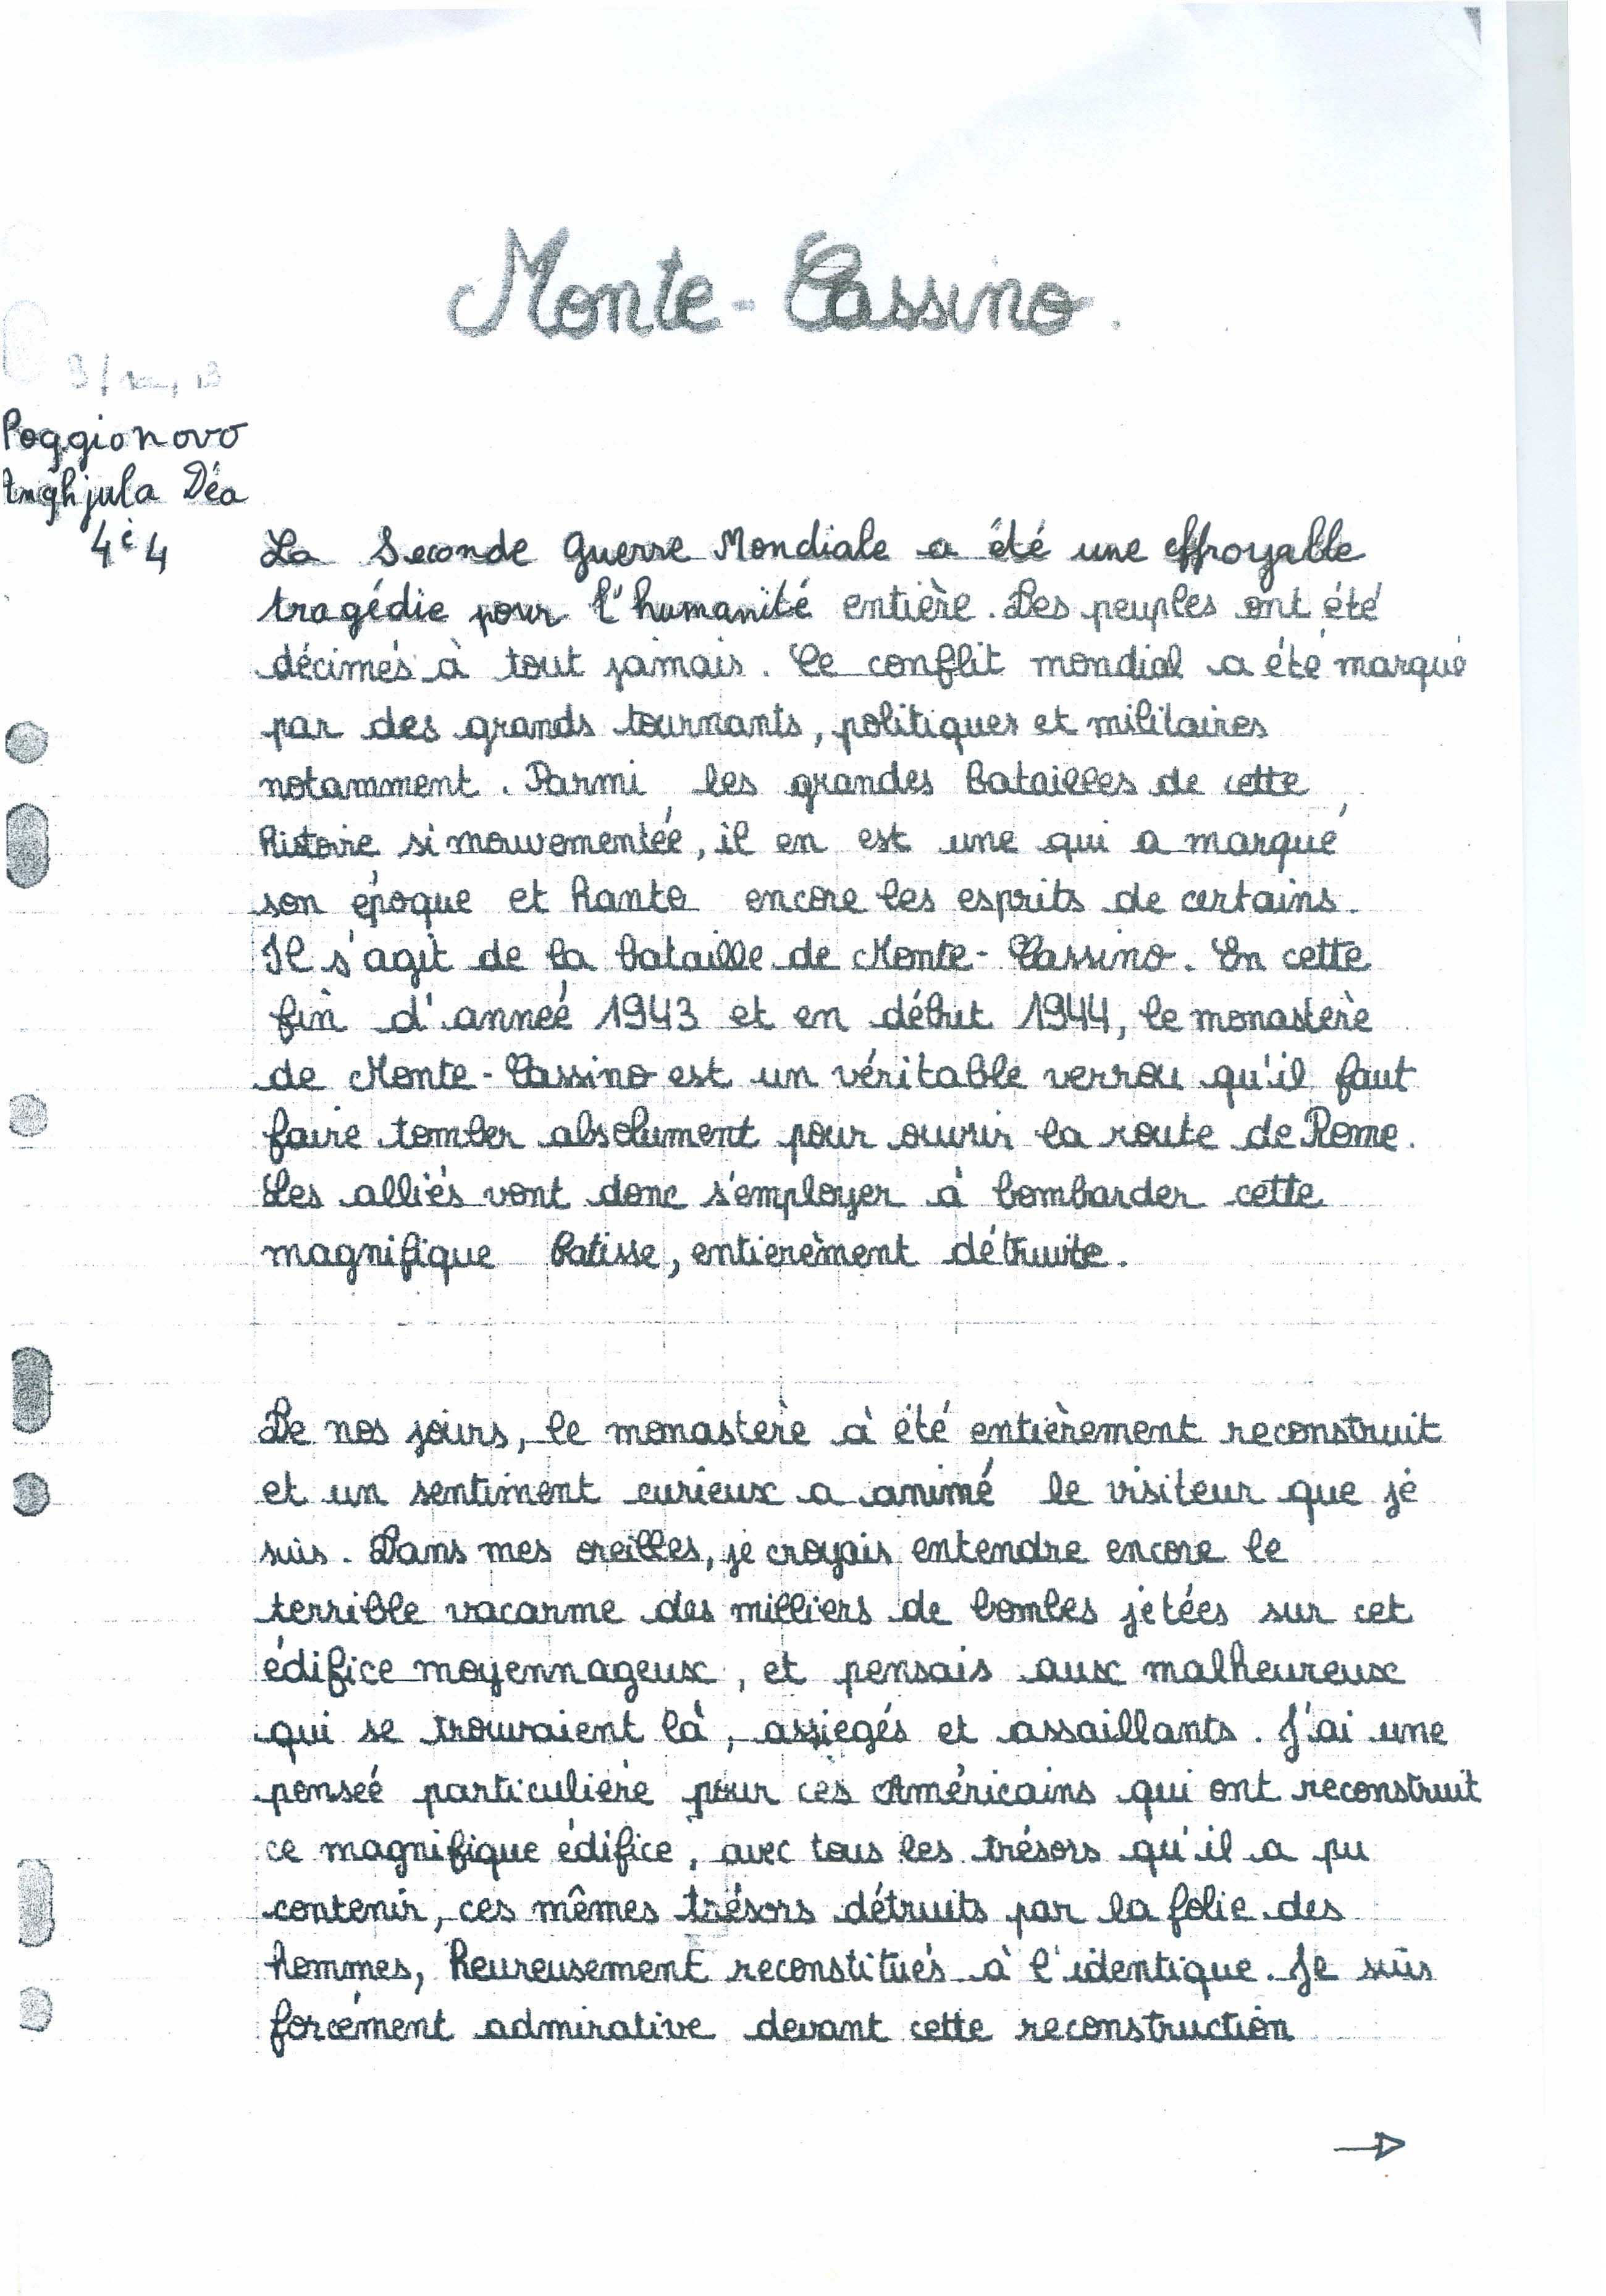 Monte-Cassino.
Poggionovo
Inghjula Déa
4è4
La Seconde Guerre Mondiale a été une effroyable
tragédie pour l'humanité entière. Des peuples ont été
décimés à tout jamais. Ce conflit mondial a été marqué
par des grands tournants, politiques et militaires
notamment. Parmi les grandes batailles de cette
histoire si mouvementée, il en est une qui a marqué
son époque et hante encore les esprits de certains.
Il s'agit de la bataille de Monte-Cassino. En cette
fin d'année 1943 et en début 1944, le monastère
de Monte-Cassino est un véritable verrou qu'il faut
faire tomber absolument pour ouvrir la route de Rome.
Les alliés vont donc s'employer à bombarder cette
magnifique batisse, entierèment détruite.
De nos jours, le monastère à été entièrement reconstruit
et un sentiment curieux a animé le visiteur que je
suis. Dans mes oreilles, je croyais entendre encore le
terrible vacarme des milliers de bombes jetées sur cet
édifice moyennageux, et pensais aux malheureux
qui se trouvaient là, assiegés et assaillants. J'ai une
pensée particulière pour ces Américains qui ont reconstruit
ce magnifique édifice, avec tous les trésors qu'il a pu
contenir, ces mêmes trésors détruits par la folie des
hommes, heureusement reconstitués à l'identique. Je suis
forcément admirative devant cette reconstruction